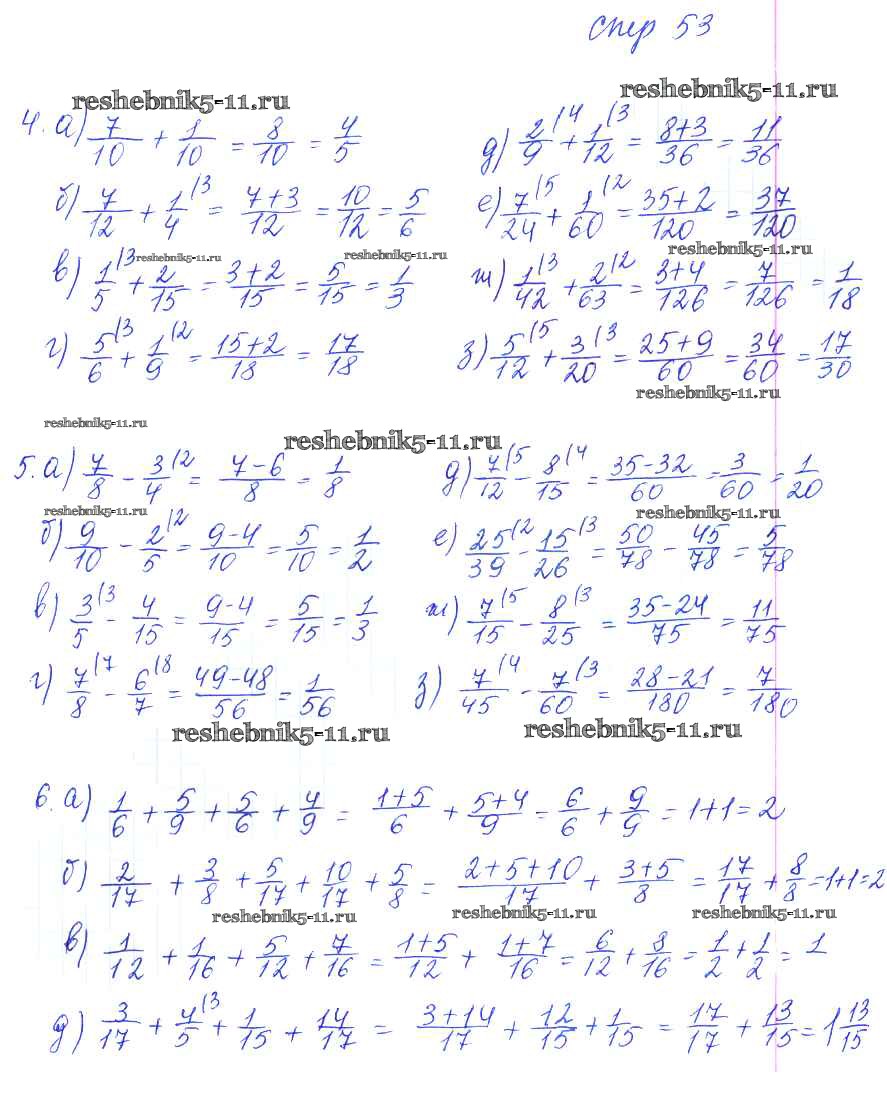 стр 53
reshebnik5-11.ru reshebnik5-11.ru
4. а) 7/10 + 1/10 = 8/10 = 4/5
б) 7/12 + 1/4 (3 = 7+3/12 = 10/12 = 5/6
reshebnik5-11.ru reshebnik5-11.ru
в) 1/5 (3 + 2/15 = 3+2/15 = 5/15 = 1/3
г) 5/6 (3 + 1/9 (2 = 15+2/18 = 17/18
д) 2/9 (4 + 1/12 (3 = 8+3/36 = 11/36
е) 7/24 (5 + 1/60 (2 = 35+2/120 = 37/120
reshebnik5-11.ru
ж) 1/42 (3 + 2/63 (2 = 3+4/126 = 7/126 = 1/18
з) 5/12 (5 + 3/20 (3 = 25+9/60 = 34/60 = 17/30
reshebnik5-11.ru
reshebnik5-11.ru
reshebnik5-11.ru
5. а) 7/8 - 3/4 (2 = 7-6/8 = 1/8
reshebnik5-11.ru
б) 9/10 - 2/5 (2 = 9-4/10 = 5/10 = 1/2
в) 3/5 (3 - 4/15 = 9-4/15 = 5/15 = 1/3
г) 7/8 (7 - 6/7 (8 = 49-48/56 = 1/56
reshebnik5-11.ru
д) 7/12 (5 - 8/15 (4 = 35-32/60 = 3/60 = 1/20
reshebnik5-11.ru
е) 25/39 (2 - 15/26 (3 = 50/78 - 45/78 = 5/78
ж) 7/15 (5 - 8/25 (3 = 35-24/75 = 11/75
з) 7/45 (4 - 7/60 (3 = 28-21/180 = 7/180
reshebnik5-11.ru
6. а) 1/6 + 5/9 + 5/6 + 4/9 = 1+5/6 + 5+4/9 = 6/6 + 9/9 = 1+1=2
б) 2/17 + 3/8 + 5/17 + 10/17 + 5/8 = 2+5+10/17 + 3+5/8 = 17/17 + 8/8 = 1+1=2
reshebnik5-11.ru reshebnik5-11.ru reshebnik5-11.ru
в) 1/12 + 1/16 + 5/12 + 7/16 = 1+5/12 + 1+7/16 = 6/12 + 8/16 = 1/2 + 1/2 = 1
д) 3/17 + 4/5 (3 + 1/15 + 14/17 = 3+14/17 + 12/15 + 1/15 = 17/17 + 13/15 = 1 13/15